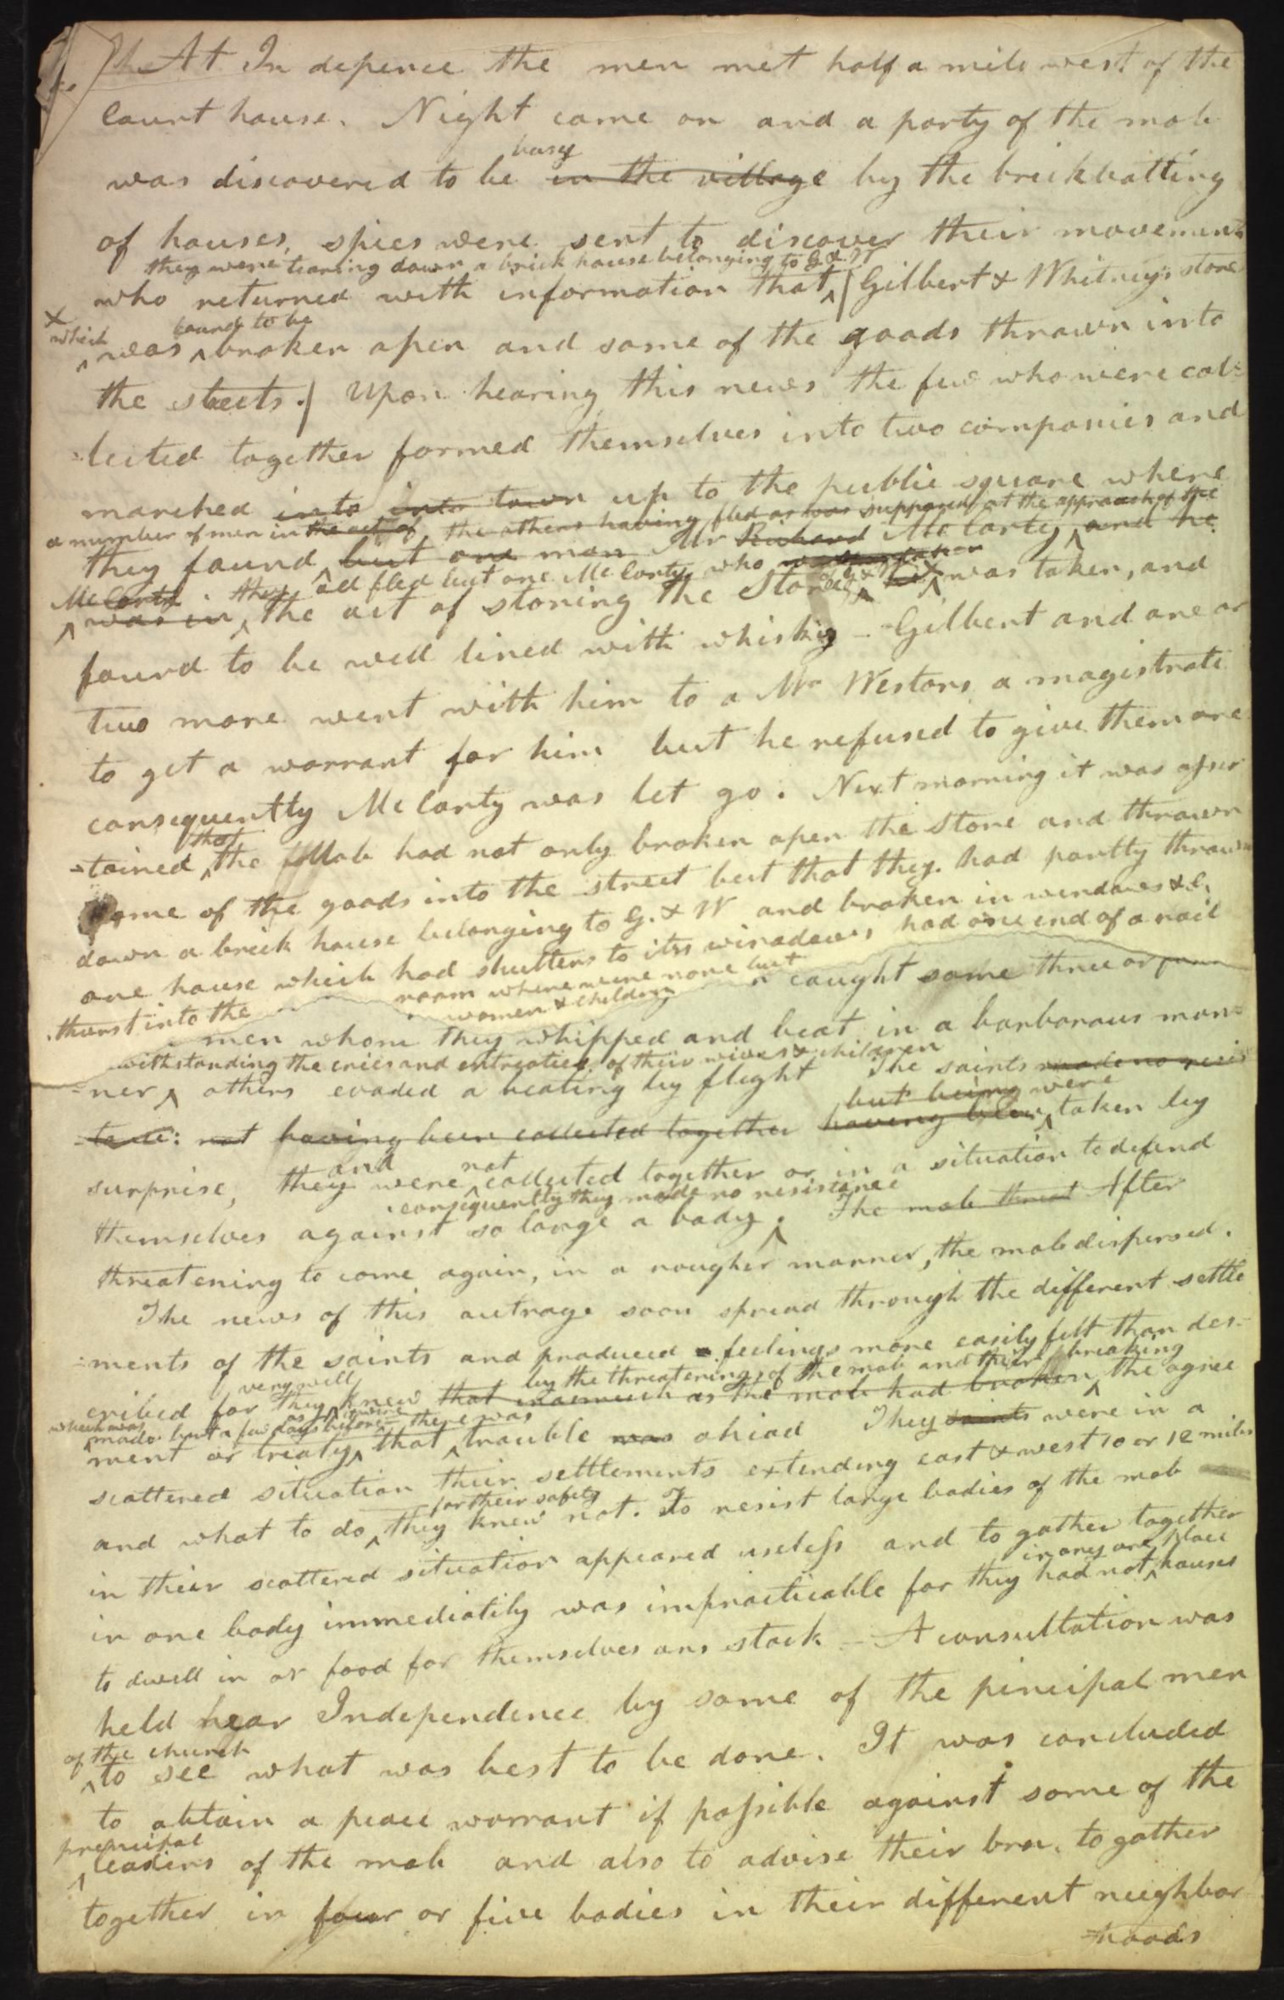 At In depence the men met half a mile west of the
Court house. Night came on and a party of the mob
busy
was discovered to be in the village by the brickbatting
of houses, spies were sent to discover their movements
they were tearing down a brick house belonging to G. & W
who returned with information that Gilbert & Whitney's store
which found to be
was broken open and some of the goods thrown into
the streets. Upon hearing this news the few who were col=
=lected together formed themselves into two companies and
marched into into town up to the public square where
a number of men in the act of the others having fled as was supposed at the approach of the
they found but one man Mr Richard McCarty and he
McCarty they all fled but one McCarty who
was in the act of stoning the Store was taken, and
found to be well lined with whiskey - Gilbert and one or
two more went with him to a Mr Westons a magistrate
to get a warrant for him but he refused to give them one
consequently McCarty was let go. Next morning it was asser
that
=tained the Mob had not only broken open the Store and thrown
some of the goods into the street but that they had partly thrown
down a brick house belonging to G. & W and broken in windows &c.
one house which had shutters to its winadows had one end of a rail
thurst into the room where were none but
women & children
caught some three or four
men whom they whipped and beat in a barbarous man=
withstanding the cries and entreaties of their wives & children
=ner others evaded a beating by flight The saints made no resis
but being were
=tance: not having been collected together having been taken by
and not
surprise, they were collected together or in a situation to defend
consequently they made no resistance
themselves against so large a body. The mob threat After
threatening to come again, in a rougher manner, the mob dispersed.
The news of this outrage soon spread through the different settle
=ments of the saints and produced feelings more easily felt than des=
very well by the threatenings of the mob and their breaking
cribed for they knew that inasmuch as the mob had broken the agree
which was made but a few days before there was
ment or treaty that trouble was ahead They saints were in a
scattered situation their settlements extending east & west 10 or 12 miles
for their safety
and what to do they knew not. To resist large bodies of the mob
in their scattered situation appeared useless and to gather together
in any one place
in one body immediatily was impracticable for they had not houses
to dwell in or food for themselves ans stock - A consultation was
held near Independence by some of the pincipal men
of the church
to see what was best to be done. It was concluded
to obtain a peace warrant if possible against some of the
premcipal
leaders of the mob and also to advise their bren. to gather
together in four or five bodies in their different neighbor
=hoods